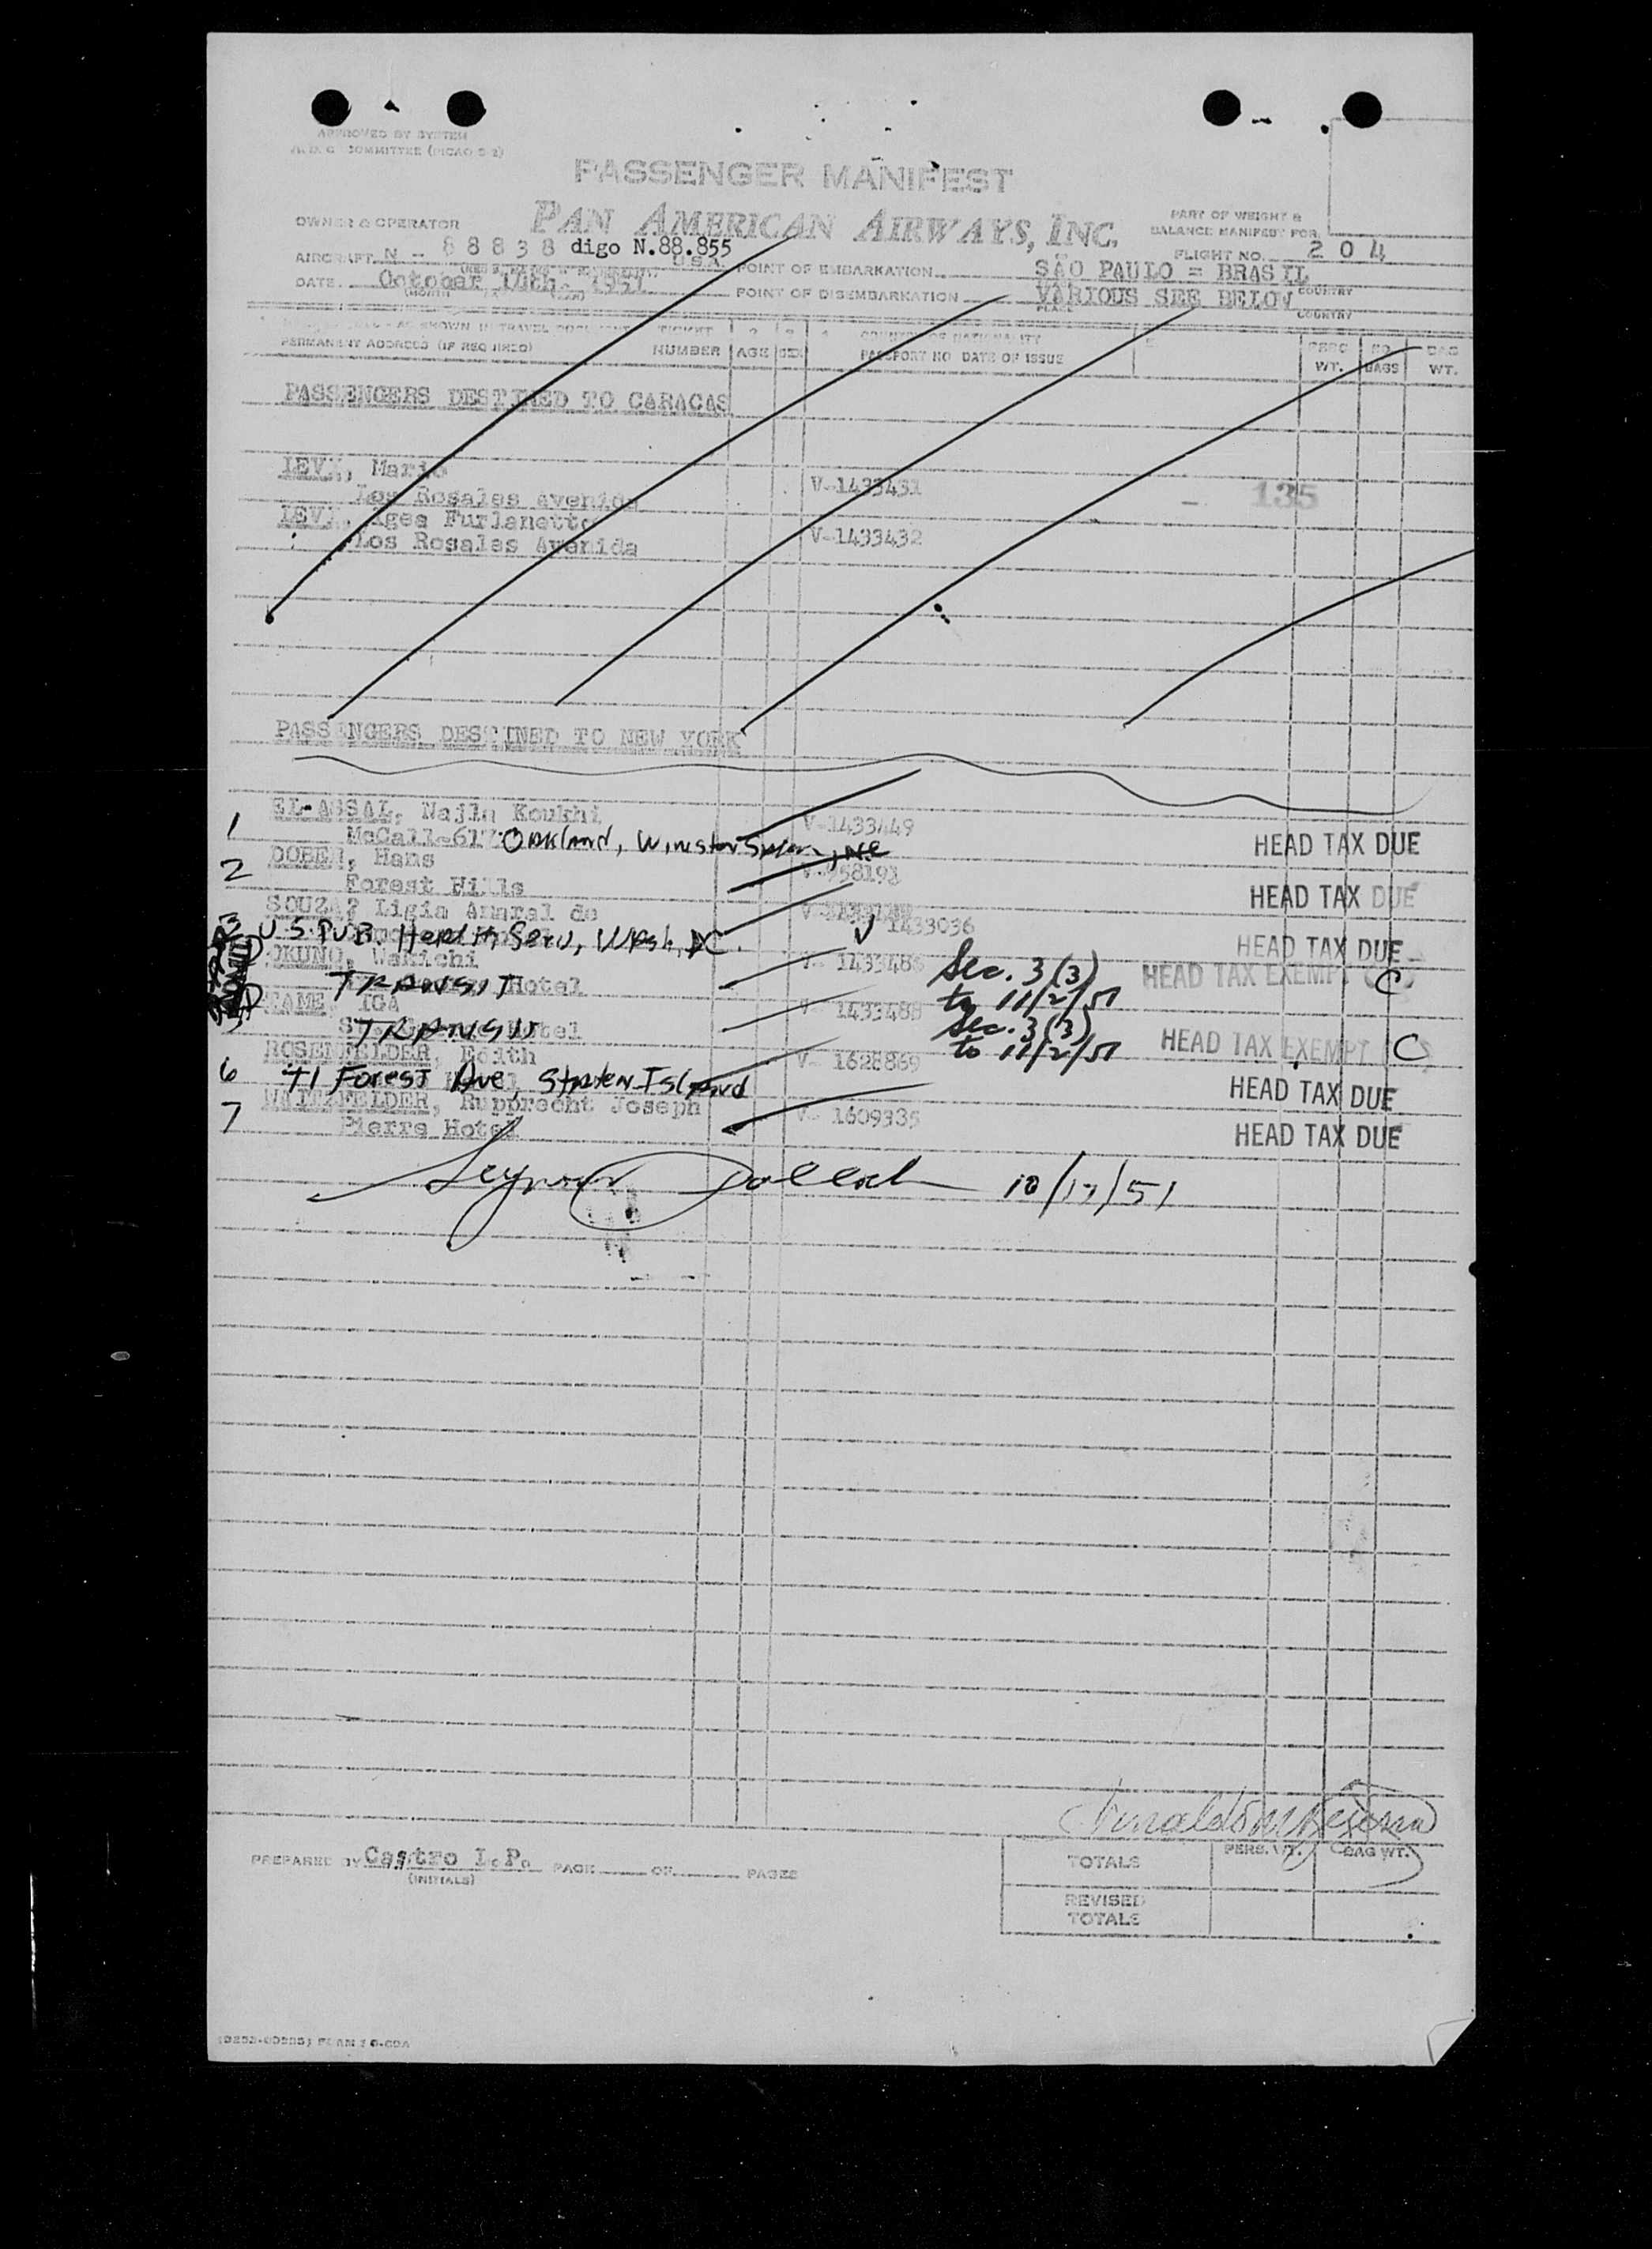 APPROVED BY SYSTEM
COMMITTEE
PASSENGER MANIFEST
OWNER & OPERATOR PAN AMERICAN AIRWAYS, INC.
PART OF WEIGHT &
BALANCE MANIFEST FOR
AIRCRAFT N - 88838 digo N.88.855 U.S.A.
FLIGHT NO. 204
POINT OF EMBARKATION SÃO PAULO = BRASIL
DATE October 14th. 1951
POINT OF DISEMBARKATION VARIOUS SEE BELOW
PLACE COUNTRY
AS SHOWN IN TRAVEL DOCUMENT TICKET COUNTRY OF NATIONALITY
PERMANENT ADDRESS (IF REQUIRED) NUMBER AGE SEX PASSPORT NO DATE OF ISSUE WT. BAGS WT.
PASSENGERS DESTINED TO CARACAS
LEVI, Mario V-1433431
Los Rosales avenida - 135
LEVI, Furlanetto V-1433432
Los Rosales Avenida
PASSENGERS DESTINED TO NEW YORK
1 EL-ASSAL, Najla Koukhi V-1433449
McCall-617 Oakland, Winston Salem, NC HEAD TAX DUE
2 Hans
Forest Hills HEAD TAX DUE
3 SOUZA, Ligia Amaral de V 1433036
U.S. Pub. Health Serv, Wash, DC. HEAD TAX DUE
OKUNO, Wakichi V- Sec. 3(3) HEAD TAX EXEMPT C
TRANSIT Hotel to 11/2/51
IGA V- 143348 Sec. 3(3)
5 TRANSIT Hotel to 11/2/51 HEAD TAX EXEMPT C
ROSENFELDER, Edith V- 1628869
6 71 Forest Ave, Staten Island HEAD TAX DUE
WAITZFELDER, Rupprecht Joseph V- 1609335
7 Pierre Hotel HEAD TAX DUE
10/17/51
PREPARED BY Castro L.P. PAGE OF PAGES
(INITIALS)
TOTALS PERS. WT. BAG WT.
REVISED
TOTALS